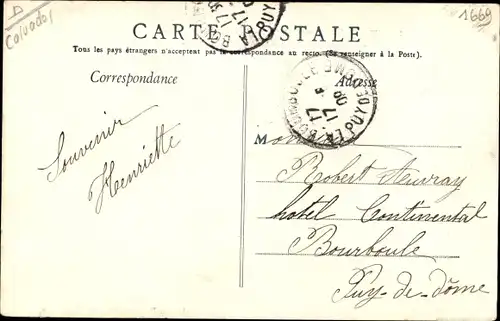 D
Calvados
1669
CARTE POSTALE
Tous les pays étrangers n'acceptent pas la correspondance au recto. (Se renseigner à la Poste).
Correspondance
Adresse
Souvenir
Henriette
M
Robert Auvray
hotel Continental
Bourboule
Puy-de-dôme